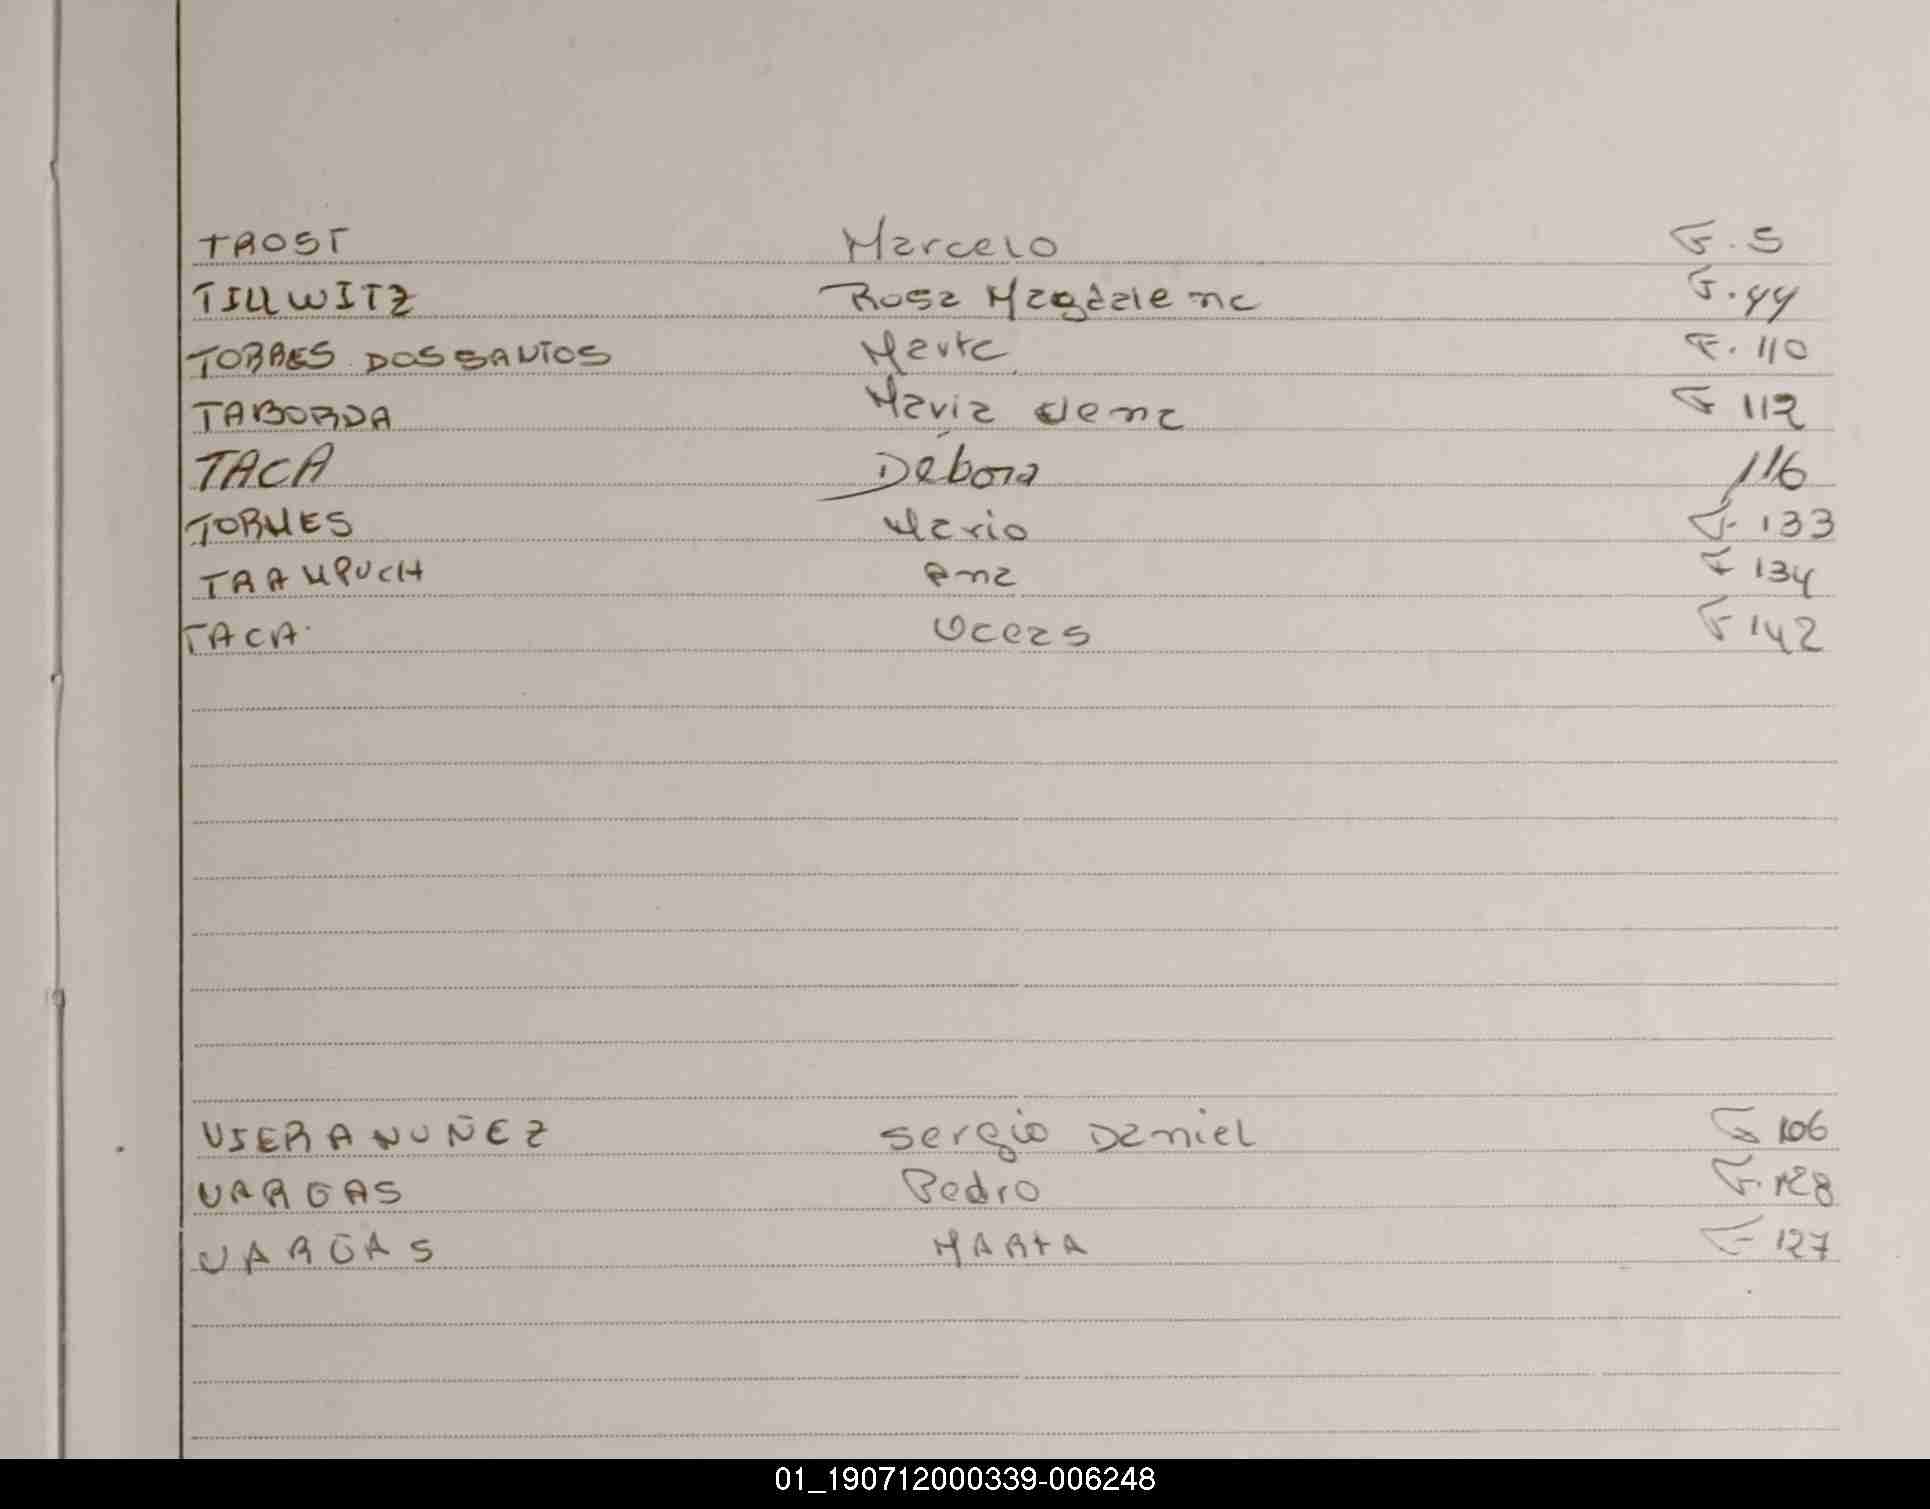 TROST Marcelo F. 5
TILLWITZ Rosa Magdalena F. 44
TORRES DOS SANTOS Marta F. 110
TABORDA Maria Elena F 112
TACA Débora 116
TORMES Mario F 133
TRAMPUCH Ana F 134
TACA F 142
VIERA NUÑEZ Sergio Daniel F 106
VARGAS Pedro F. 128
VARGAS MARTA F 127
01_190712000339-006248